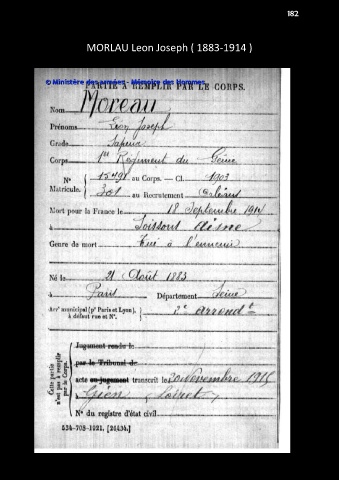 182
MORLAU Leon Joseph ( 1883-1914 )
© Ministère des armées - Mémoire des Hommes
PARTIE À REMPLIR PAR LE CORPS.
Nom Moreau
Prénoms Léon Joseph
Grade Sapeur
Corps 1er Régiment du Génie
N° 15491 au Corps. — Cl. 1903
Matricule. 301 au Recrutement Orléans
Mort pour la France le 18 Septembre 1914
à Soissons Aisne
Genre de mort Tué à l'ennemi
Né le 21 Août 1883
à Paris Département Seine
Arrt municipal (pr Paris et Lyon), à défaut rue et N°. 2e arrondt
Cette partie n'est pas à remplir par le Corps.
Jugament rendu le
par le Tribunal de
acte ou jugement transcrit le 20 Novembre 1915
Gien Loiret
N° du registre d'état civil
534-708-1921. [26434.]